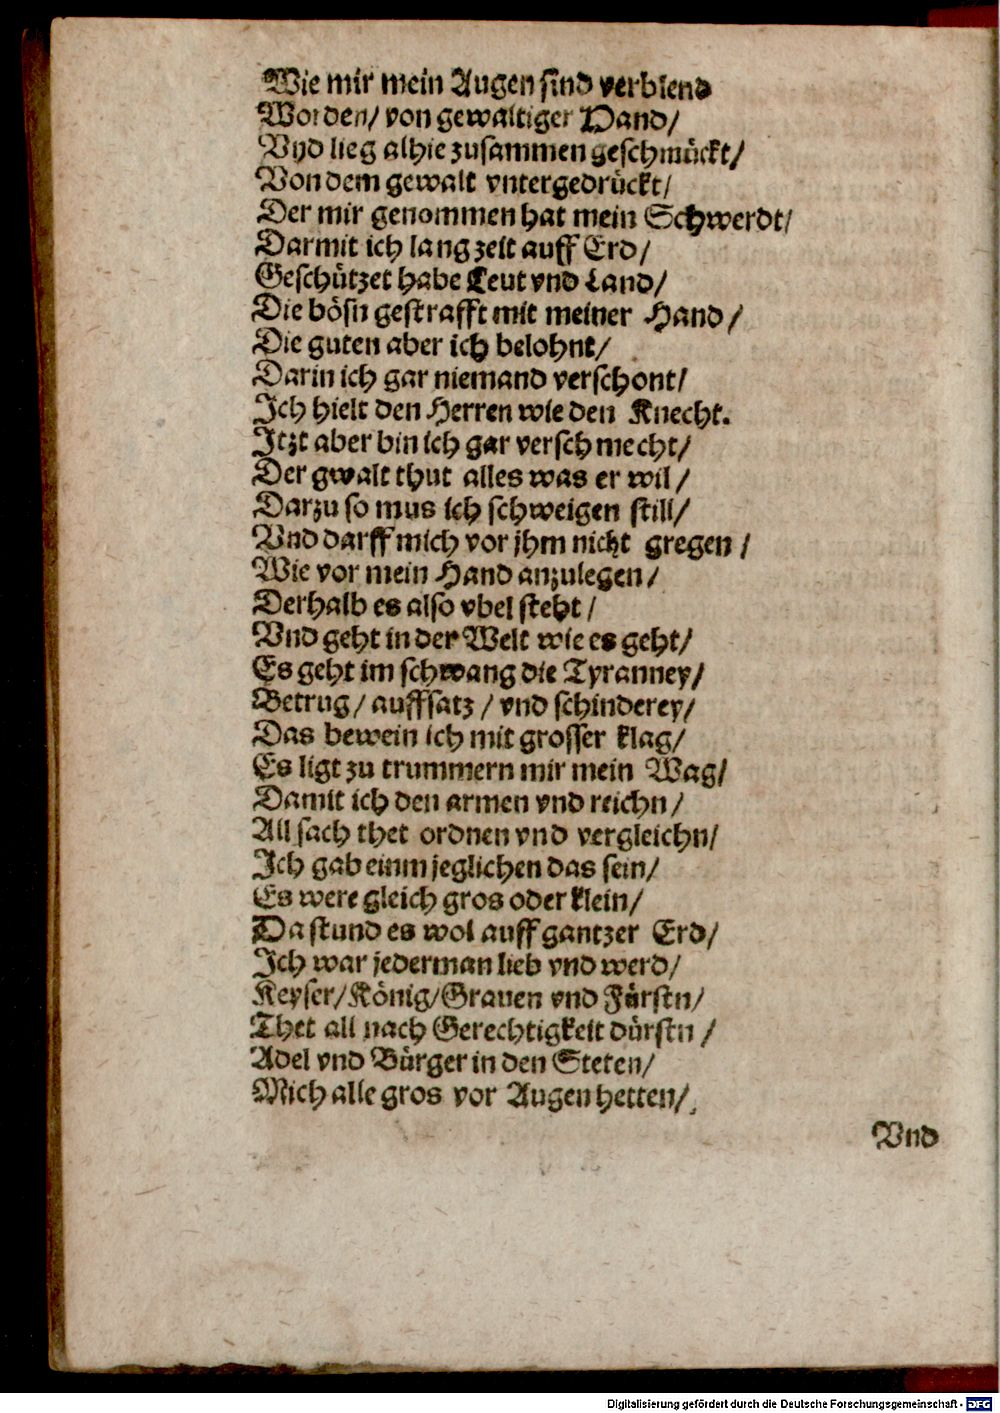 Wie mir mein Augen sind verblend
Worden/ von gewaltiger Hand/
Vnd lieg alhie zusammen geschmückt/
Von dem gewalt vntergedrückt/
Der mir genommen hat mein Schwerdt/
Darmit ich lang zeit auff Erd/
Geschützet habe Leut vnd Land/
Die bösn gestrafft mit meiner Hand/
Die guten aber ich belohnt/
Darin ich gar niemand verschont/
Ich hielt den Herren wie den Knecht.
Itzt aber bin ich gar verschmecht/
Der gwalt thut alles was er wil/
Darzu so mus ich schweigen still/
Vnd darff mich vor jhm nicht gregen/
Wie vor mein Hand anzulegen/
Derhalb es also vbel steht/
Vnd geht in der Welt wie es geht/
Es geht im schwang die Tyranney/
Betrug/ auffsatz/ vnd schinderey/
Das bewein ich mit grosser klag/
Es ligt zu trummern mir mein Wag/
Damit ich den armen vnd reichn/
All sach thet ordnen vnd vergleichn/
Ich gab einm jeglichen das sein/
Es were gleich gros oder klein/
Da stund es wol auff gantzer Erd/
Ich war jederman lieb vnd werd/
Keyser/ König/ Grauen vnd Fürstn/
Thet all nach Gerechtigkeit dürstn/
Adel vnd Bürger in den Steten/
Mich alle gros vor Augen hetten/
Vnd
Digitalisierung gefördert durch die Deutsche Forschungsgemeinschaft - DFG